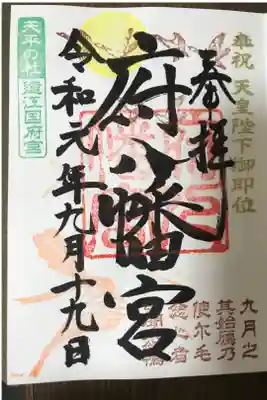 奉祝 天皇陛下御即位
奉拝
府八幡宮
令和元年九月十九日
天平の社 遠江国府宮
九月之
其始雁乃
使尓毛